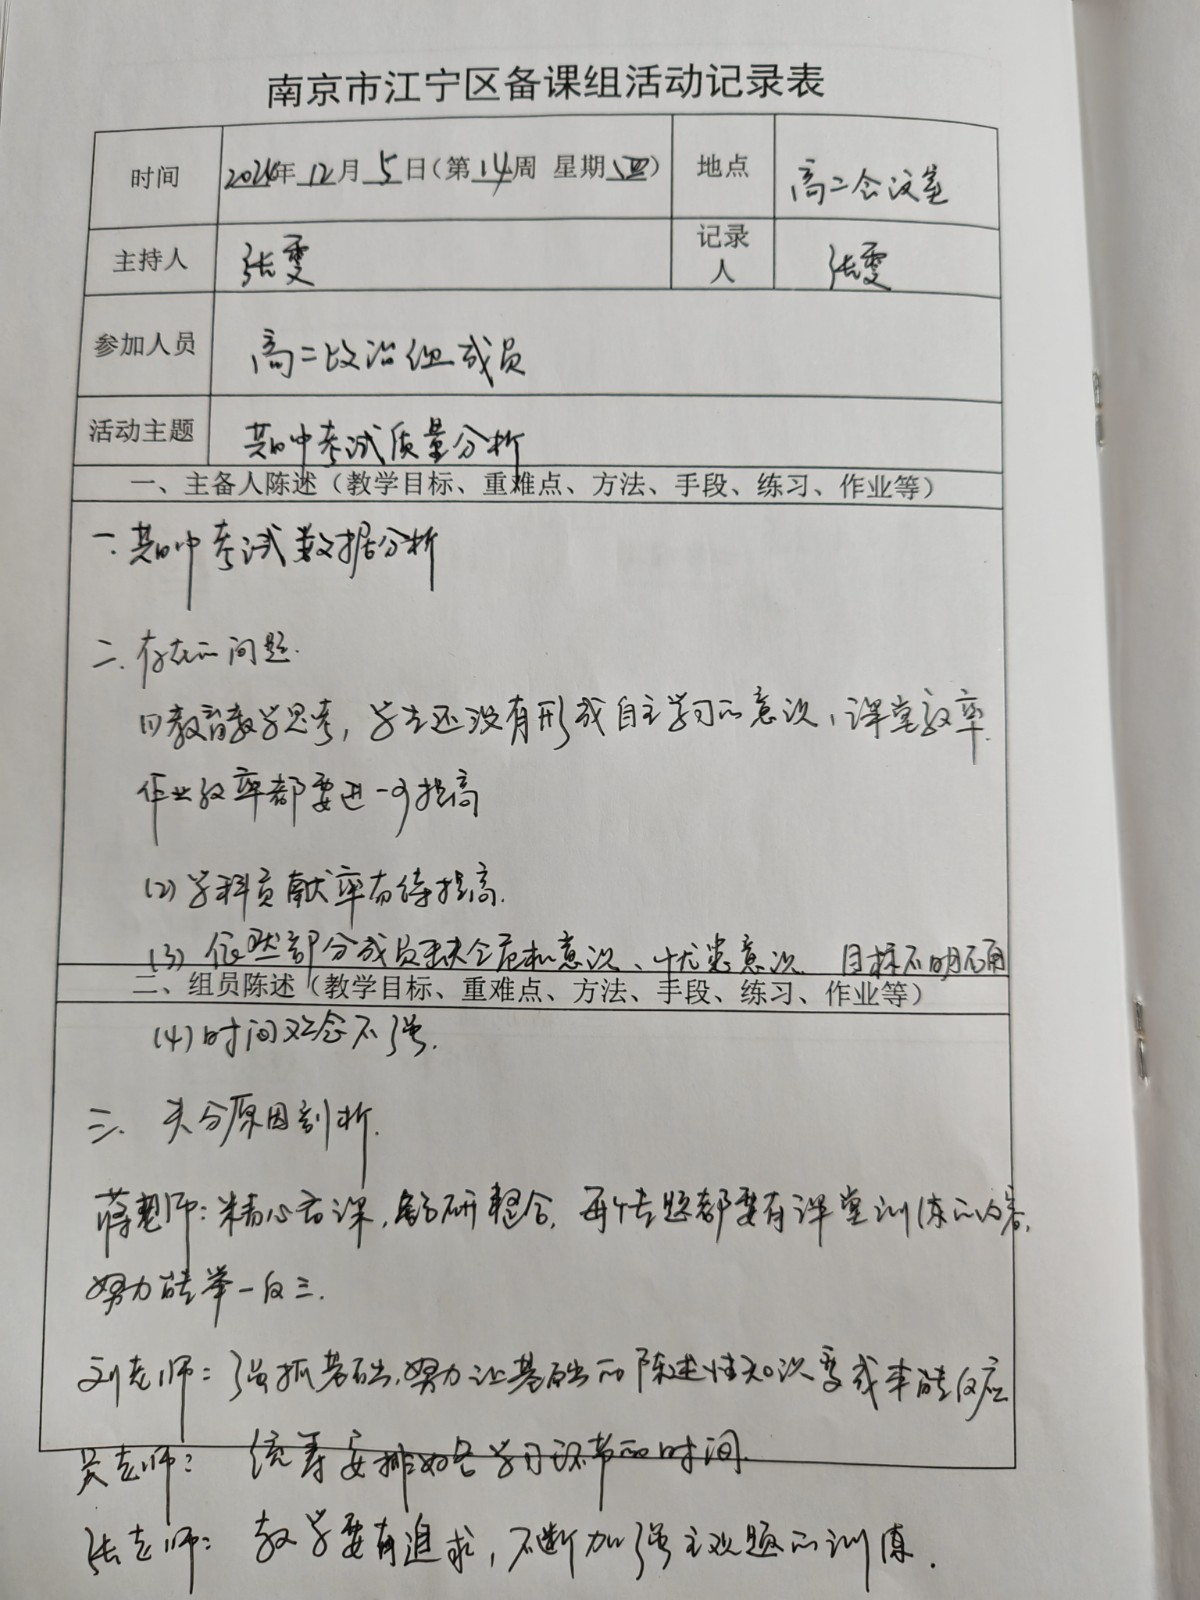 南京市江宁区备课组活动记录表
时间 2024年12月5日(第14周 星期四) 地点 高二会议室
主持人 张雯 记录人 张雯
参加人员 高二政治组成员
活动主题 期中考试质量分析
一、主备人陈述（教学目标、重难点、方法、手段、练习、作业等）
一.期中考试数据分析
二.存在的问题.
(1)教育教学思考，学生还没有形成自主学习的意识，课堂效率.
作业效率都要进一步提高
(2)学科贡献率有待提高.
(3)依然部分成员缺乏危机意识、忧患意识 目标不明确
二、组员陈述（教学目标、重难点、方法、手段、练习、作业等）
(4)时间观念不强.
三. 失分原因剖析.
蒋老师：精心备课，钻研整合，每个专题都要有课堂训练的内容，
努力能举一反三.
刘老师：强抓基础，努力让基础的陈述性知识变成本能反应
吴老师： 统筹安排好各学习环节的时间.
张老师： 教学要有追求，不断加强主观题的训练.